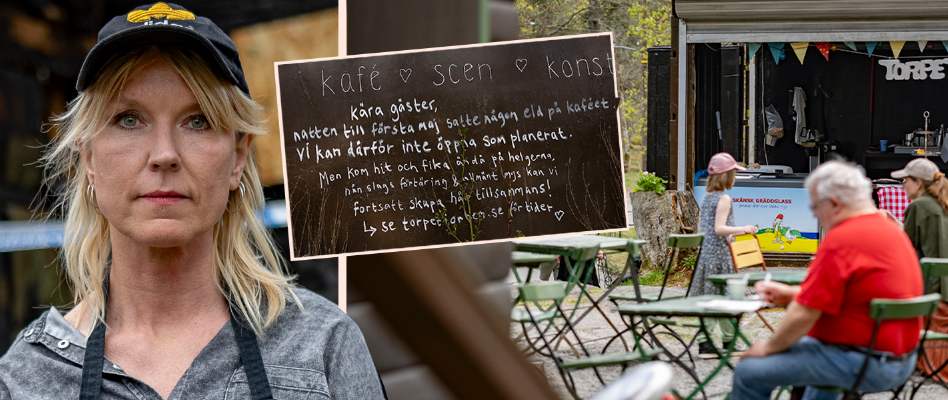 kafé ♡ scen ♡ konst
kära gäster,
natten till första maj satte någon eld på kaféet.
Vi kan därför inte öppna som planerat.
Men kom hit och fika ändå på helgerna,
nån slags förtäring & allmänt mys kan vi
fortsatt skapa här tillsammans!
↳ se torpet för tider ♡
TORPE
SKÅNSK GRÄDDGLASS